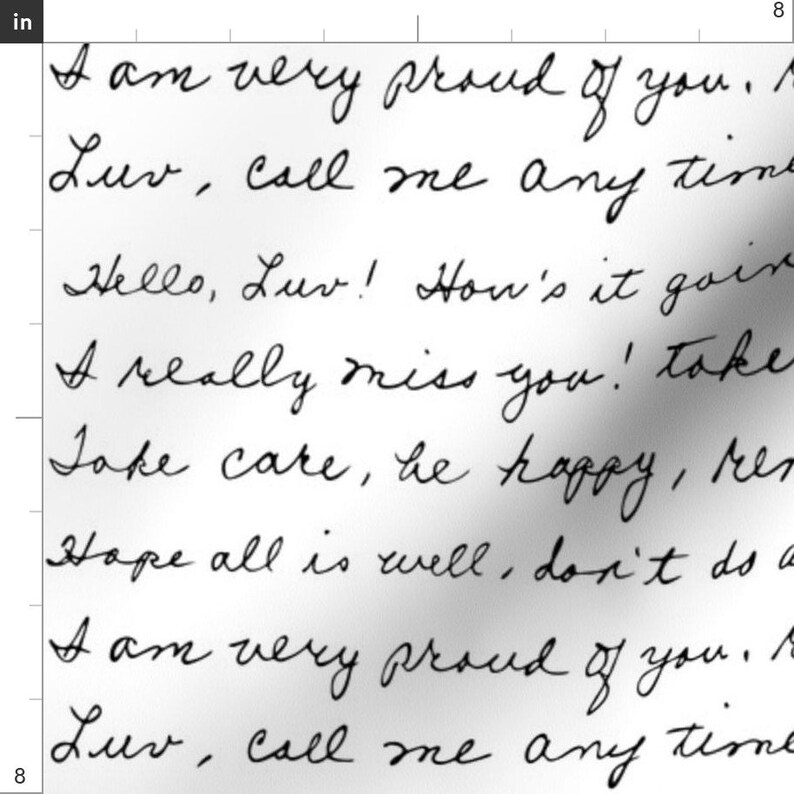 in
8
I am very proud of you.
Luv, call me any time
Hello, Luv! How's it goin
I really miss you! take
Take care, be happy, rem
Hope all is well, don't do a
I am very proud of you.
Luv, call me any time
8